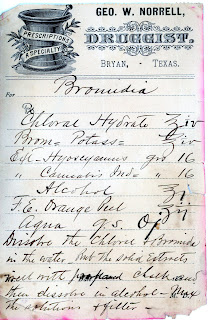 GEO. W. NORRELL,
PRESCRIPTIONS
A SPECIALTY
DRUGGIST.
BRYAN, - TEXAS.
For Bromidia
℞
Chloral Hydrate ℥iv
Brom- Potass- ℥iv
Ext- Hyoscyamus grs 16
" Cannabis Ind- " 16
Alcohol
F. E. Orange Peel
Aqua q.s. Oj
Dissolve the Chloral & Bromide
in the water. Rub the solid Extracts
well with chalk and
then dissolve in alcohol - Mix
the solutions & filter -